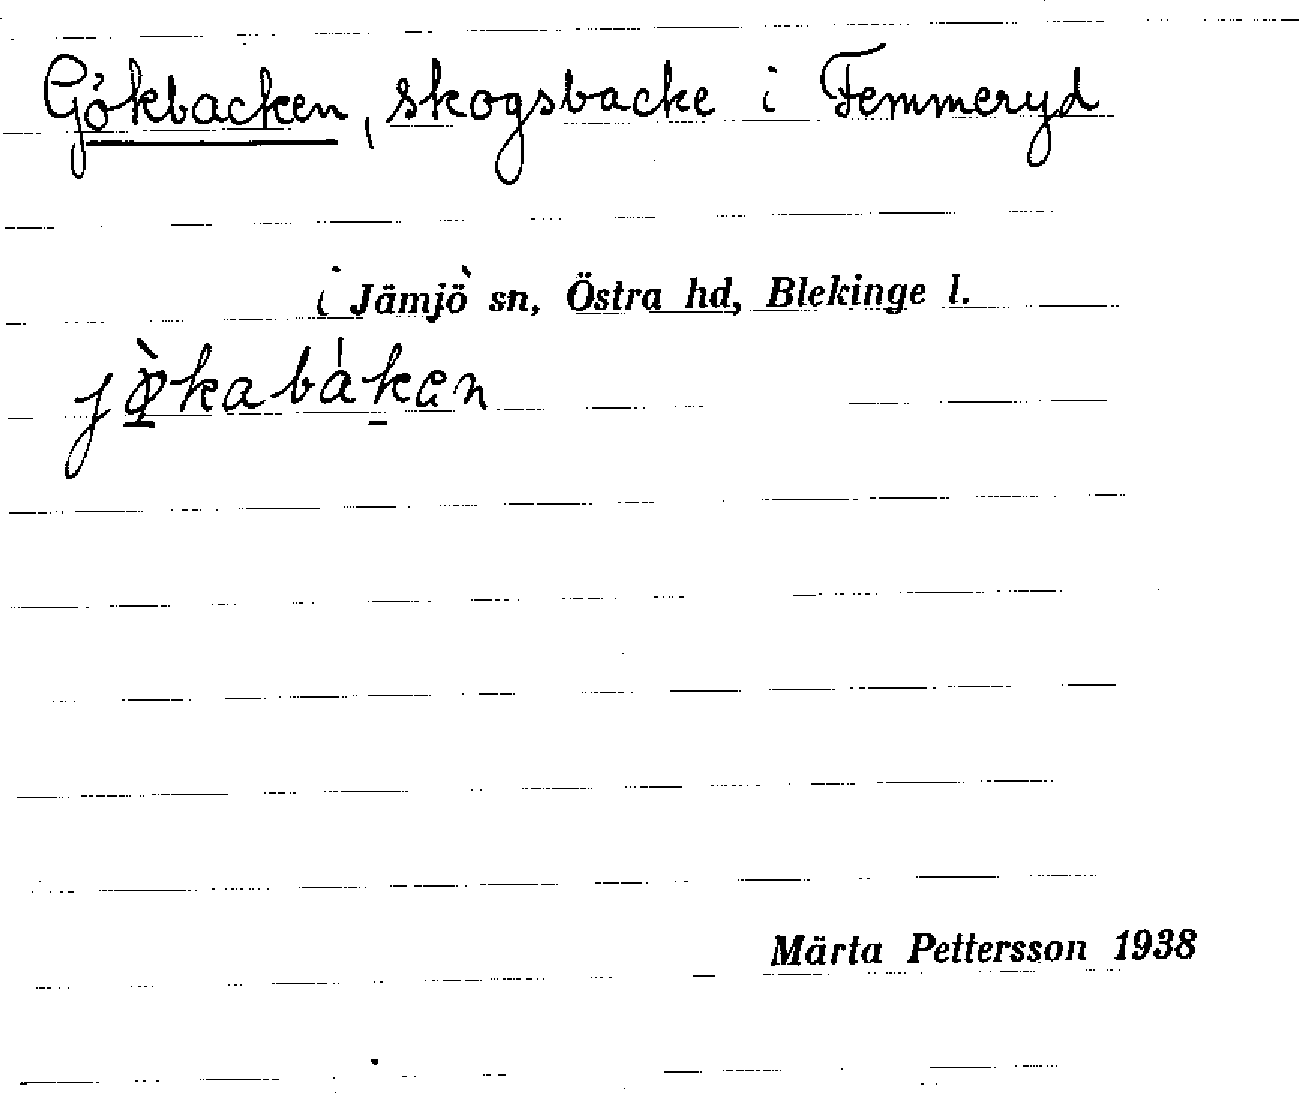 Gökbacken, skogsbacke i Femmeryd
i Jämjö sn, Östra hd, Blekinge l.
jø̀kabáken
Märta Pettersson 1938